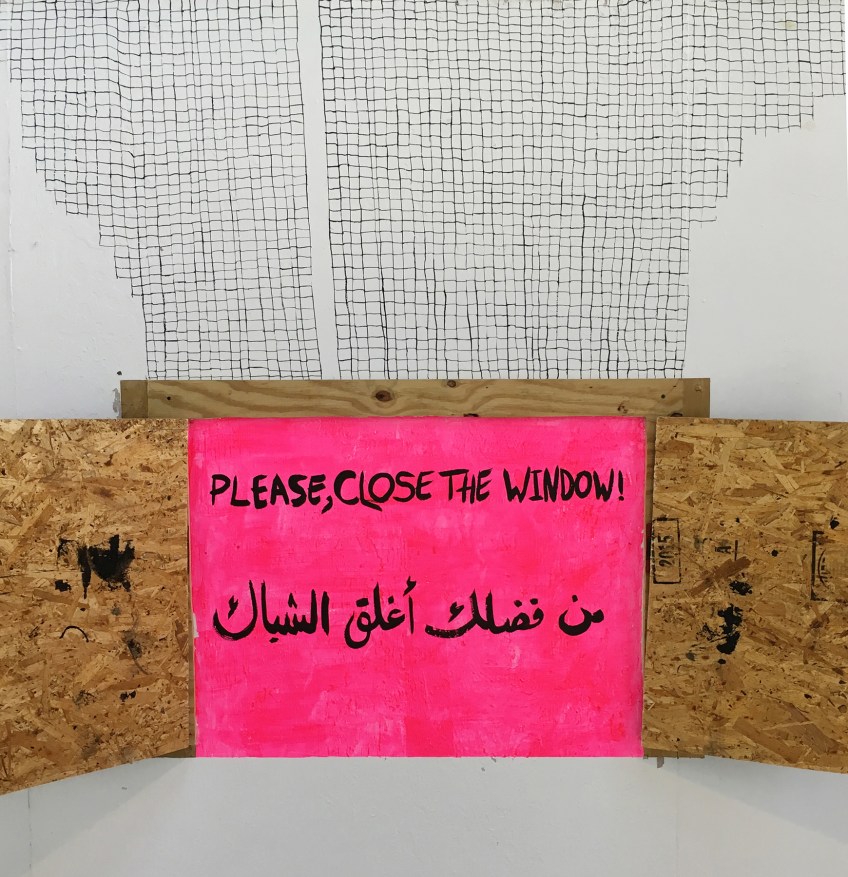 PLEASE, CLOSE THE WINDOW!
من فضلك أغلق الشباك
2015